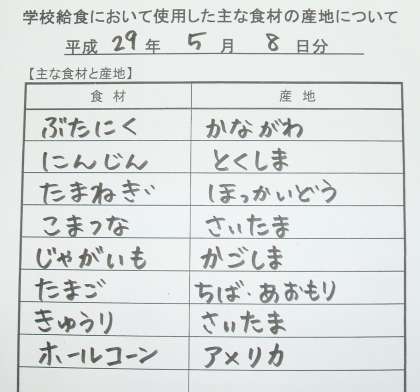 学校給食において使用した主な食材の産地について
平成 29 年 5 月 8 日分
【主な食材と産地】
食材 産地
ぶたにく かながわ
にんじん とくしま
たまねぎ ほっかいどう
こまつな さいたま
じゃがいも かごしま
たまご ちば・あおもり
きゅうり さいたま
ホールコーン アメリカ